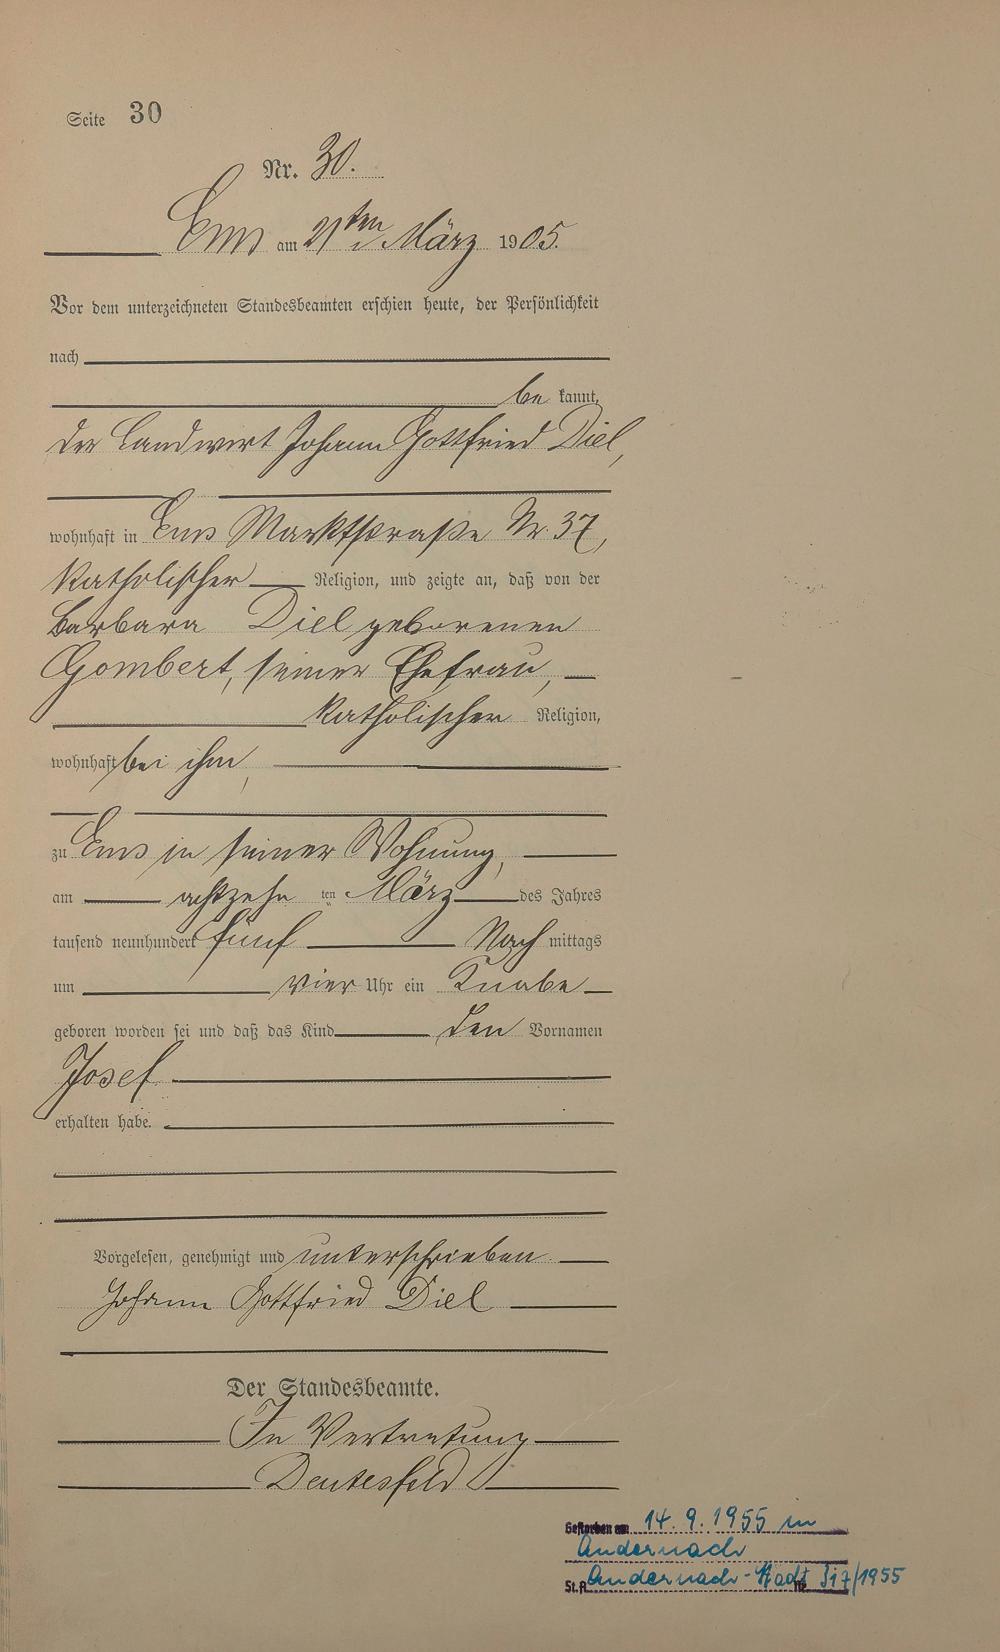 Seite 30
Nr. 30.
Ems am 21ten März 1905.
Vor dem unterzeichneten Standesbeamten erschien heute, der Persönlichkeit
nach
be kannt,
der Landwirt Johann Gottfried Diel,
wohnhaft in Ems Marktstraße Nr. 37,
katholischer Religion, und zeigte an, daß von der
Barbara Diel geborenen
Gombert, seiner Ehefrau,
katholischer Religion,
wohnhaft bei ihm,
zu Ems in seiner Wohnung,
am achtzehn ten März des Jahres
tausend neunhundert fünf Nach mittags
um vier Uhr ein Knabe
geboren worden sei und daß das Kind den Vornamen
Josef
erhalten habe.
Vorgelesen, genehmigt und unterschrieben
Johann Gottfried Diel
Der Standesbeamte.
In Vertretung
Deutesfeld
Gestorben am 14.9.1955 in
Andernach
St.A. Andernach-Stadt Nr. 317/1955